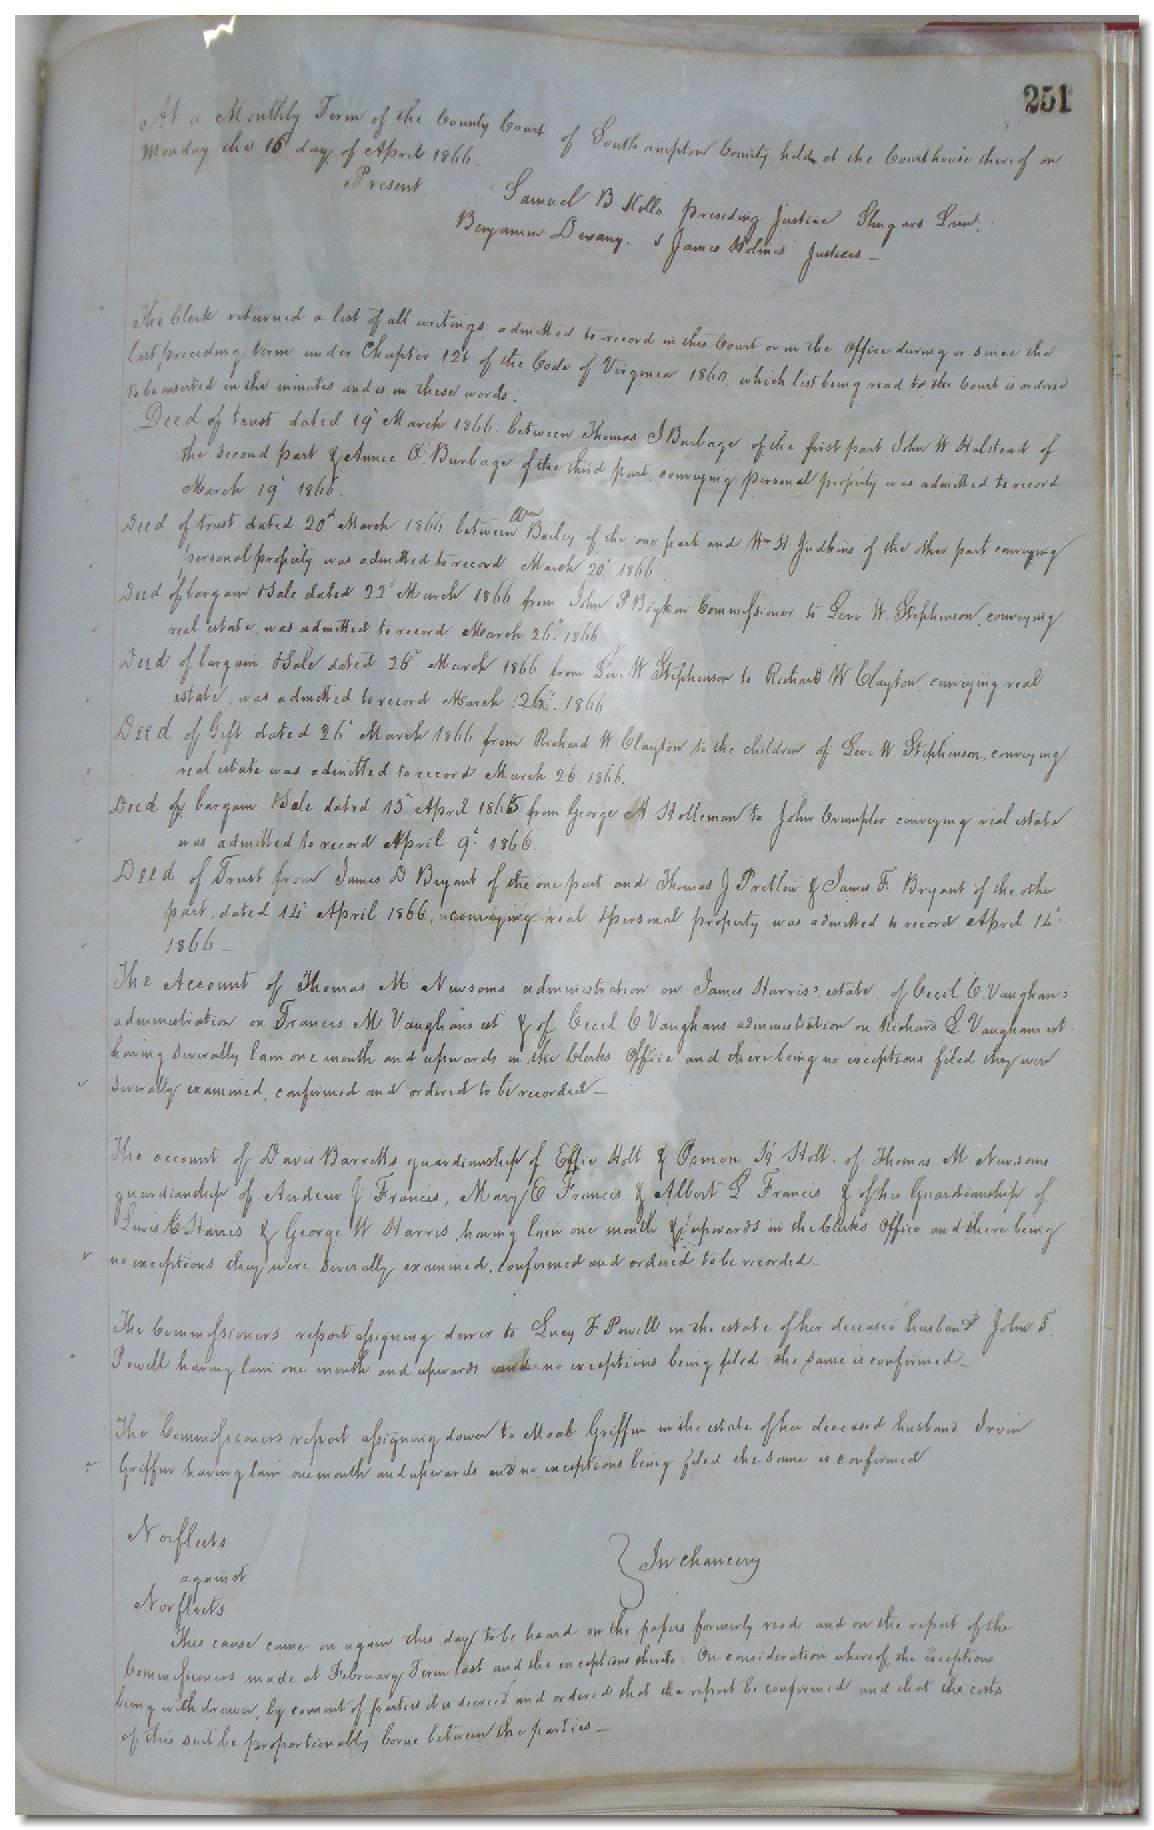 251
At a Monthly Term of the County Court of Southampton County held at the Courthouse thereof on
Monday the 16 day of April 1866.
Present
Samuel B Kello presiding Justice
Benjamin Devany. & James Holmes Justices —
The Clerk returned a list of all writings admitted to record in this Court or in the Office during or since the
last preceding term under Chapter 121 of the Code of Virginia 1860, which list being read to the Court is ordered
to be inserted in the minutes and is in these words:
Deed of trust dated 19 March 1866. between Thomas J Burbage of the first part John W Halstead of
the second part & Annie O Burbage of the third part, conveying personal property was admitted to record
March 19 1866.
Deed of trust dated 20 March 1866 between Wm Bailey of the one part and Wm H Judkins of the other part conveying
personal property was admitted to record March 20 1866
Deed of bargain & Sale dated 22 March 1866 from John P Boykin Commissioner to Levi W. Stephenson, conveying
real estate, was admitted to record March 26. 1866
Deed of bargain & Sale dated 26 March 1866 from Levi W Stephenson to Richard W Clayton, conveying real
estate, was admitted to record March 26. 1866
Deed of Gift dated 26 March 1866 from Richard W Clayton to the children of Levi W Stephenson, conveying
real estate was admitted to record March 26. 1866.
Deed of bargain & Sale dated 15 April 1865 from George H. Holleman to John Crumpler conveying real estate
was admitted to record April 9. 1866.
Deed of Trust from James D Bryant of the one part and Thomas J Pretlow & James F. Bryant of the other
part, dated 14 April 1866, conveying real & personal property was admitted to record April 14
1866 —
The Account of Thomas M Newsoms administration on James Harris's estate, of Cecil C Vaughan's
administration on Francis M Vaughans est & of Cecil C Vaughans administration on Richard L Vaughans est
having severally lain one month and upwards in the Clerks Office and there being no exceptions filed they were
severally examined, confirmed and ordered to be recorded —
The account of Davis Barretts guardianship of Effie Holt & Osmon K Holt. of Thomas M Newsoms
guardianship of Andrew J Francis, Mary E Francis & Albert L Francis & of his Guardianship of
Lewis E Harris & George W Harris, having lain one month & upwards in the Clerks Office and there being
no exceptions they were severally examined, confirmed and ordered to be recorded —
The Commissioners report assigning dower to Lucy F Powell in the estate of her deceased husband John T.
Powell having lain one month and upwards and no exceptions being filed the same is confirmed —
The Commissioners report assigning dower to Moab Griffin in the estate of her deceased husband Irvin
Griffin having lain one month and upwards and no exceptions being filed the same is confirmed
Norfleets
against
Norfleets
In chancery
This cause came on again this day to be heard on the papers formerly read and on the report of the
Commissioners made at February Term last and the exceptions thereto. On consideration whereof, the exceptions
being withdrawn, by consent of parties it is decreed and ordered that the report be confirmed and that the costs
of this suit be proportionally borne between the parties —